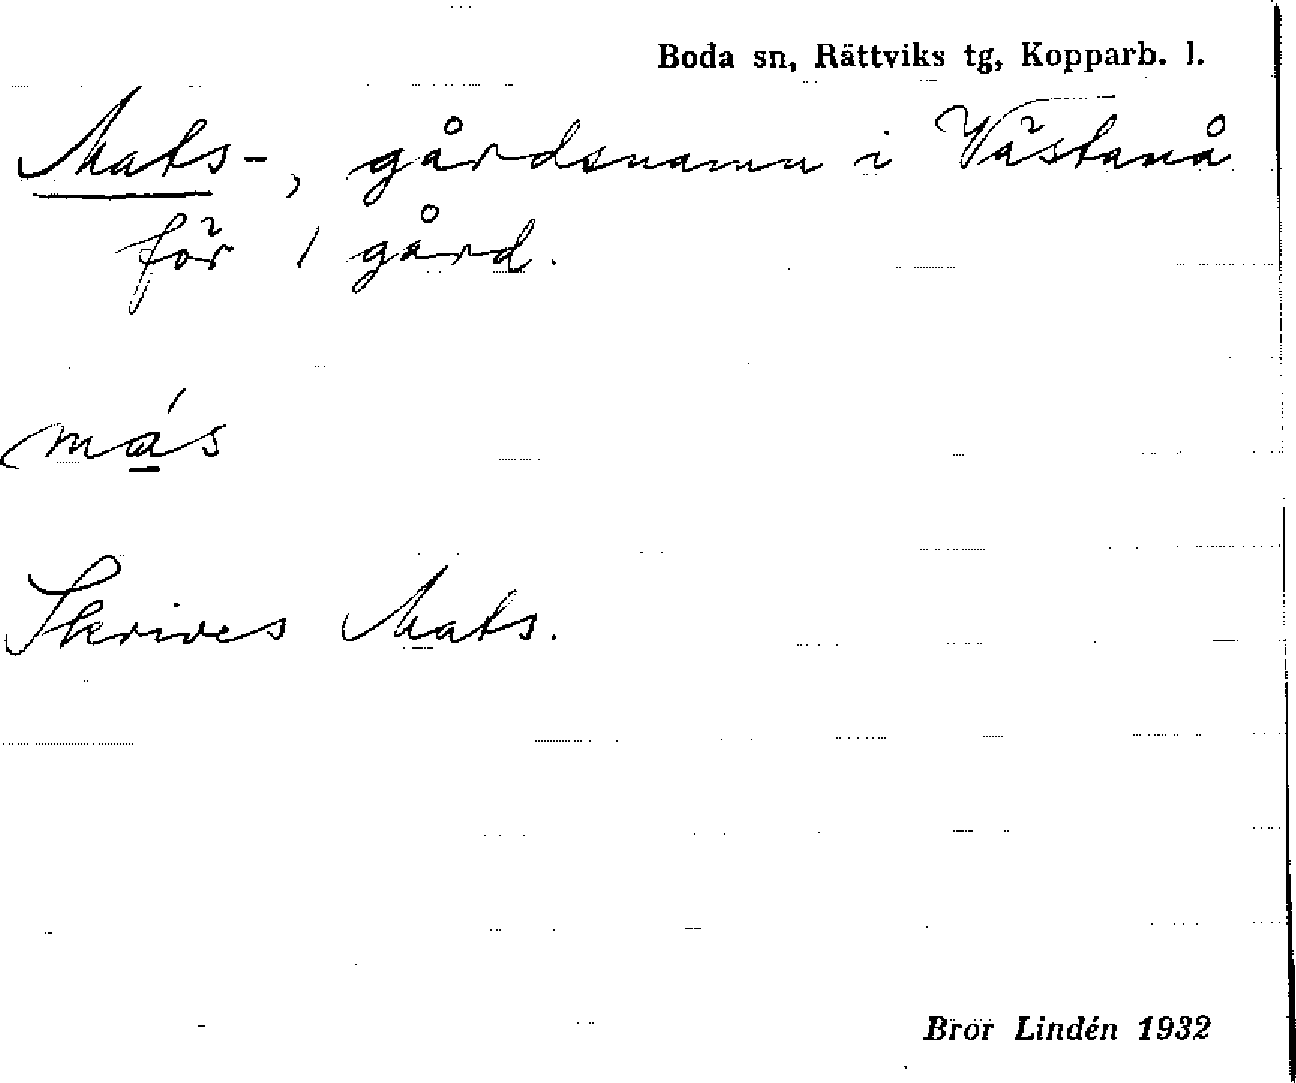 Boda sn, Rättviks tg, Kopparb. l.
Mats-, gårdsnamn i Västanå
för 1 gård.
má̲s
Skrives Mats.
Bror Lindén 1932